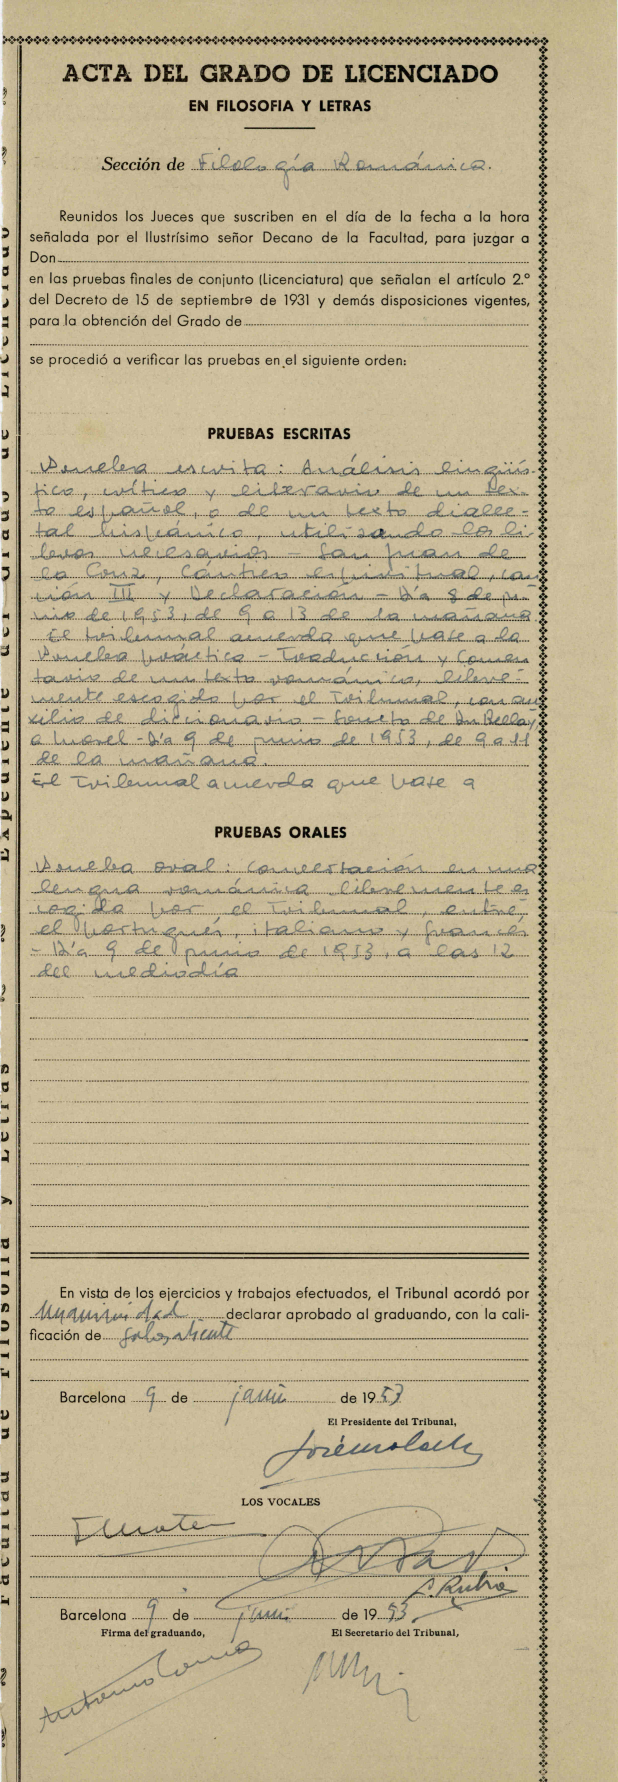 ACTA DEL GRADO DE LICENCIADO
EN FILOSOFIA Y LETRAS
Sección de Filología Románica.
Reunidos los Jueces que suscriben en el día de la fecha a la hora
señalada por el Ilustrísimo señor Decano de la Facultad, para juzgar a
Don
en las pruebas finales de conjunto (Licenciatura) que señalan el artículo 2.º
del Decreto de 15 de septiembre de 1931 y demás disposiciones vigentes,
para la obtención del Grado de
se procedió a verificar las pruebas en el siguiente orden:
PRUEBAS ESCRITAS
Prueba escrita: Análisis lingüís-
tico, crítico y literario de un tex-
to español, o de un texto dialec-
tal hispánico, utilizando los li-
bros necesarios - San Juan de
la Cruz, Cántico espiritual, can
ción III y Declaración - Día 8 de ju-
nio de 1953, de 9 a 13 de la mañana.
El Tribunal acuerda que pase a la
Prueba práctica - Traducción y comen
tario de un texto románico, libre-
mente escogido por el Tribunal, con au
xilio de diccionario - Soneto de Du Bellay
a Morel - Día 9 de junio de 1953, de 9 a 11
de la mañana.
El Tribunal acuerda que pase a
PRUEBAS ORALES
Prueba oral: conversación en una
lengua románica libremente es
cogida por el Tribunal, entre
el portugués, italiano y francés
- Día 9 de junio de 1953, a las 12
del mediodía
En vista de los ejercicios y trabajos efectuados, el Tribunal acordó por
unanimidad declarar aprobado al graduando, con la cali-
ficación de sobresaliente
Barcelona 9 de junio de 1953
El Presidente del Tribunal,
LOS VOCALES
P. Rubio
Barcelona 9 de junio de 1953
Firma del graduando, El Secretario del Tribunal,
Antonio
Facultad de Filosofía y Letras Expediente del Grado de Licenciado